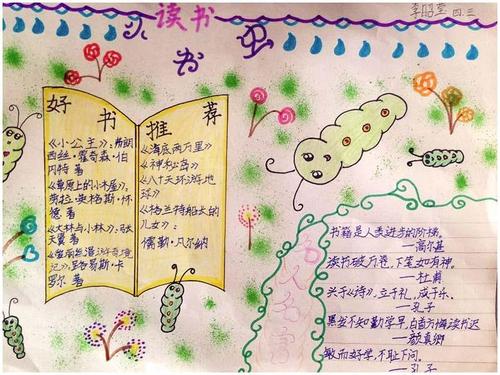 读书
小书虫
李昭萱 四.三
好书推荐
《小公主》：弗朗
西丝·霍奇森·伯
内特 著
《草原上的小木屋》，
劳拉·英格斯·怀
德 著
《大林与小林》：张
天翼 著
《爱丽丝漫游奇境
记》，路易斯·卡
罗尔 著
《海底两万里》
《神秘岛》
《八十天环游地
球》
《格兰特船长的
儿女》：
儒勒·凡尔纳
名人名言
书籍是人类进步的阶梯。
——高尔基
读书破万卷，下笔如有神。
——杜甫
兴于《诗》，立于礼，成于乐。
——孔子
黑发不知勤学早，白首方悔读书迟
——颜真卿
敏而好学，不耻下问。
——孔子